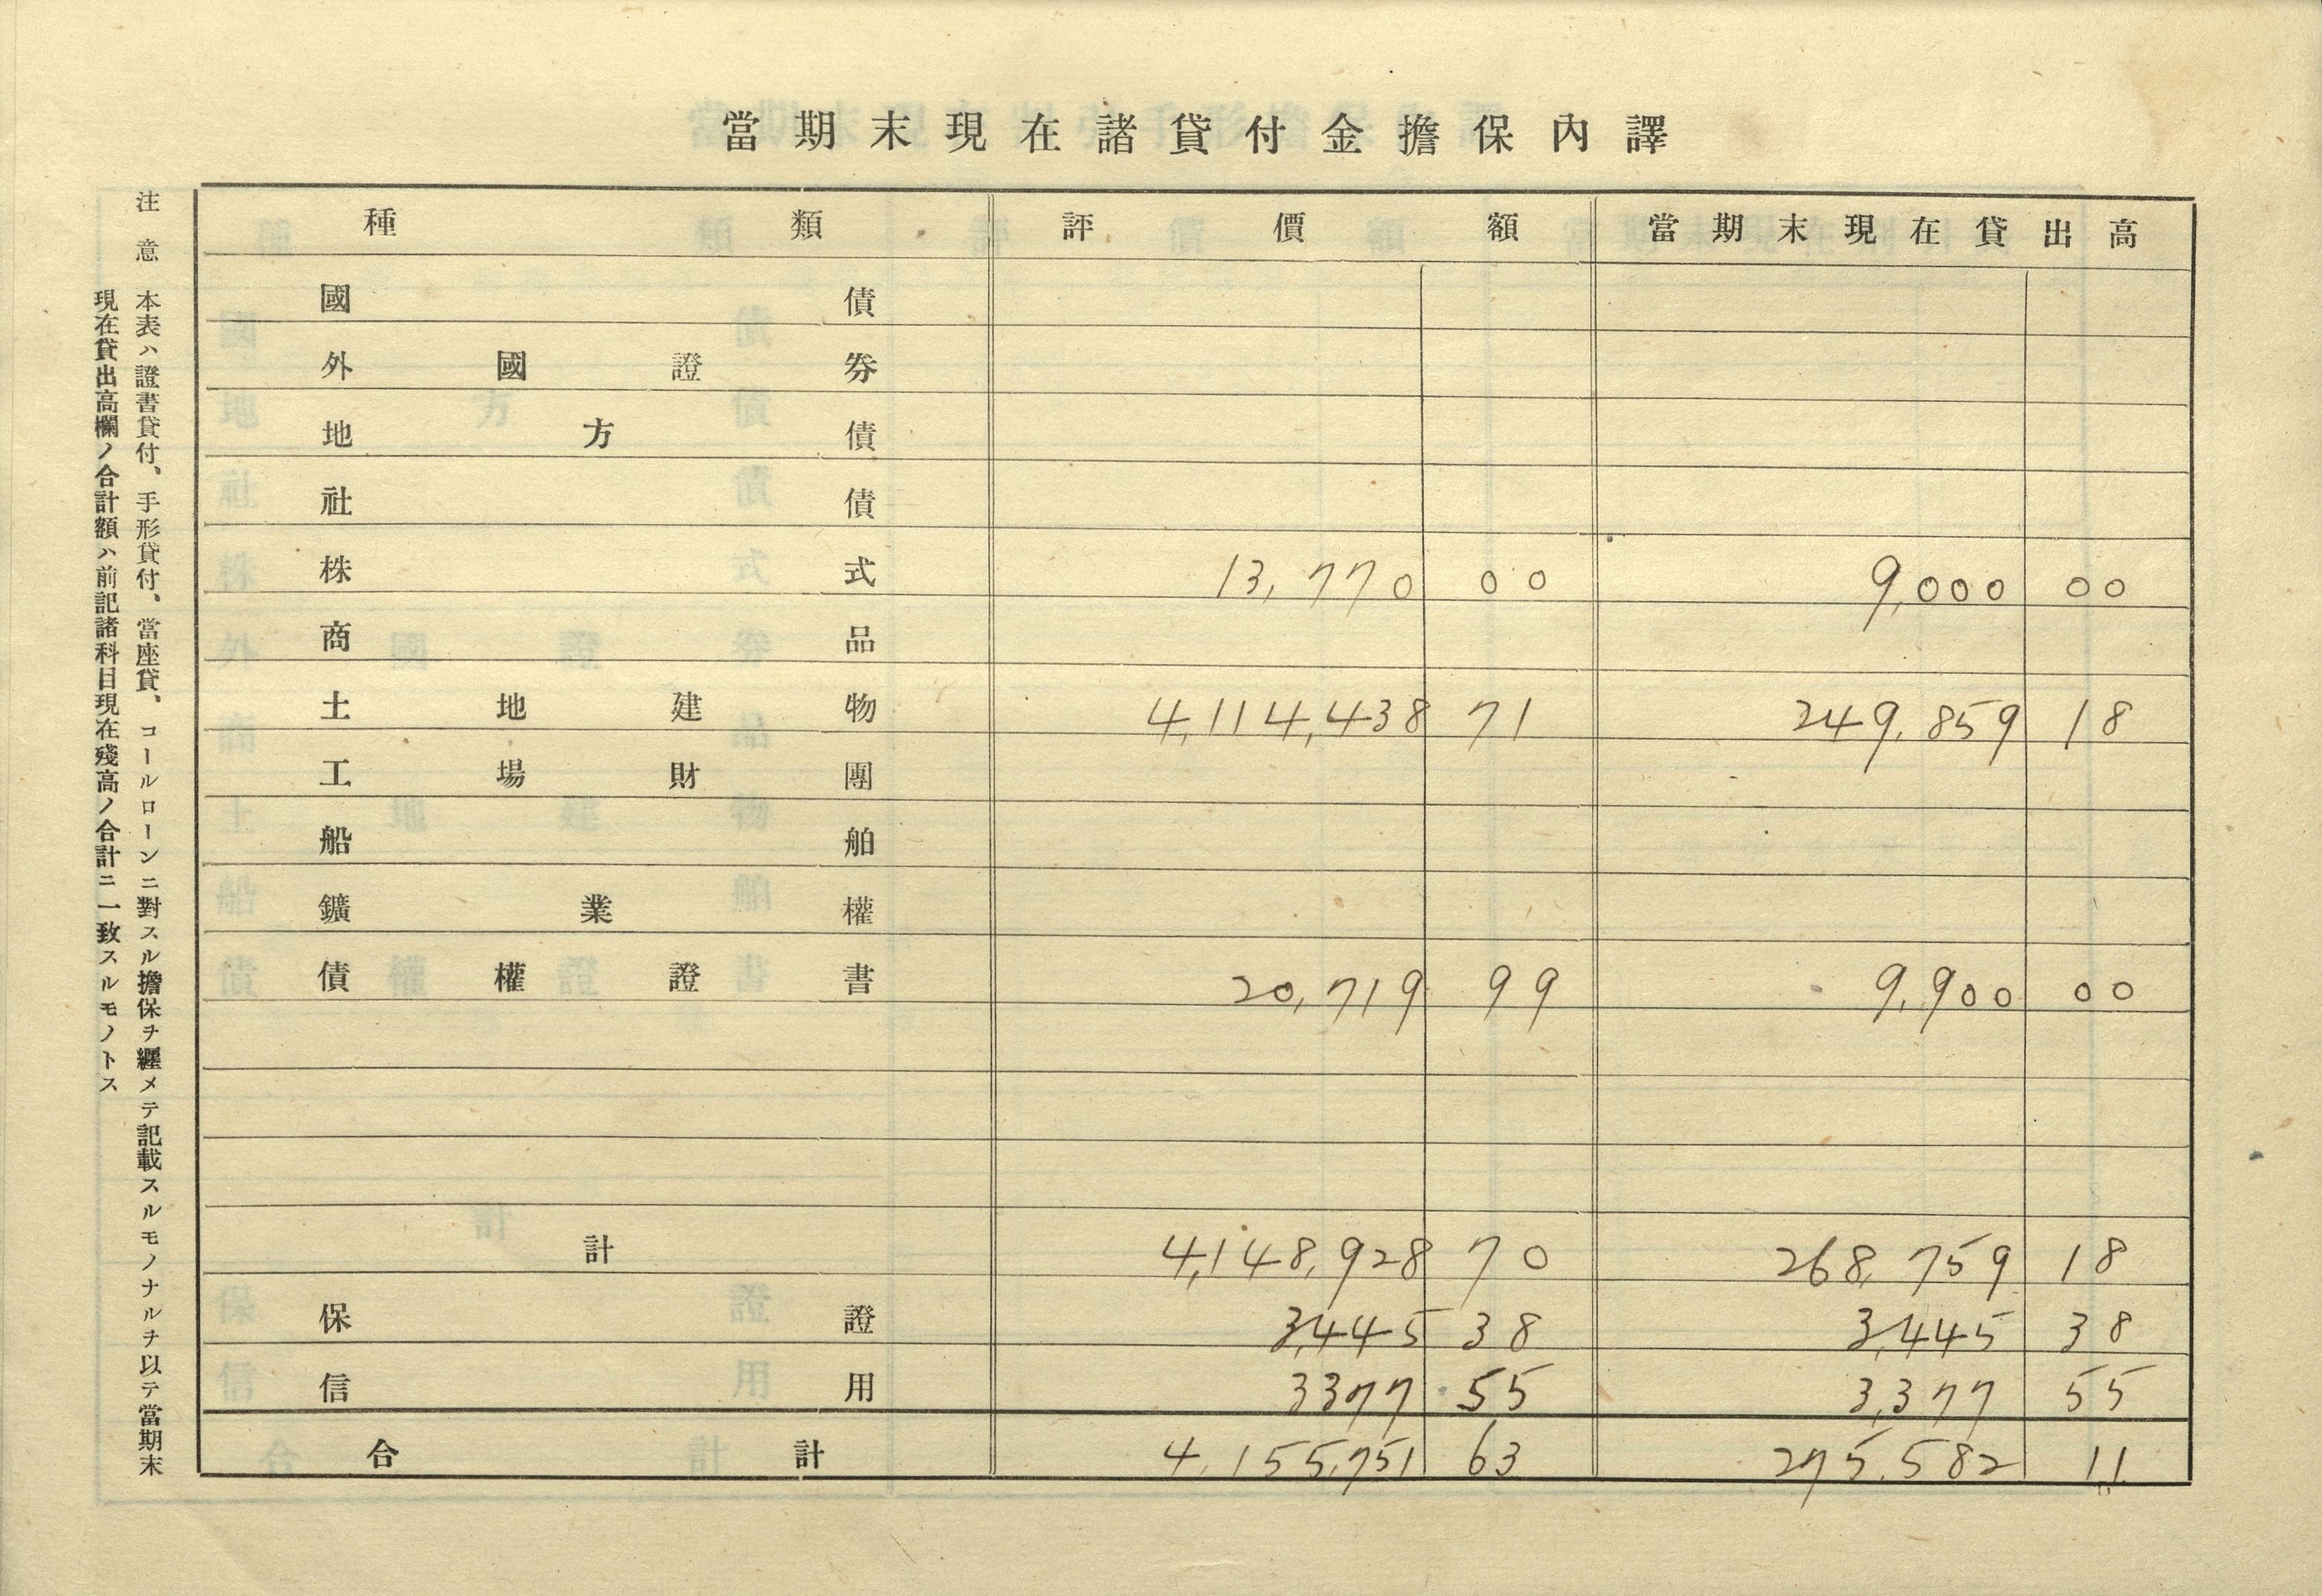 當期末現在諸貸付金擔保內譯
種類 評價額 當期末現在貸出高
國債
外國證券
地方債
社債
株式 13,770 00 9,000 00
商品
土地建物 4,114,438 71 249,859 18
工場財團
船舶
鑛業權
債權證書 20,719 99 9,900 00
計 4,148,928 70 268,759 18
保證 3,445 38 3,445 38
信用 3377 55 3,377 55
合計 4,155,751 63 275,582 11
注意 本表ハ證書貸付、手形貸付、當座貸、コールローンニ對スル擔保ヲ纒メテ記載スルモノナルヲ以テ當期末
現在貸出高欄ノ合計額ハ前記諸科目現在殘高ノ合計ニ一致スルモノトス